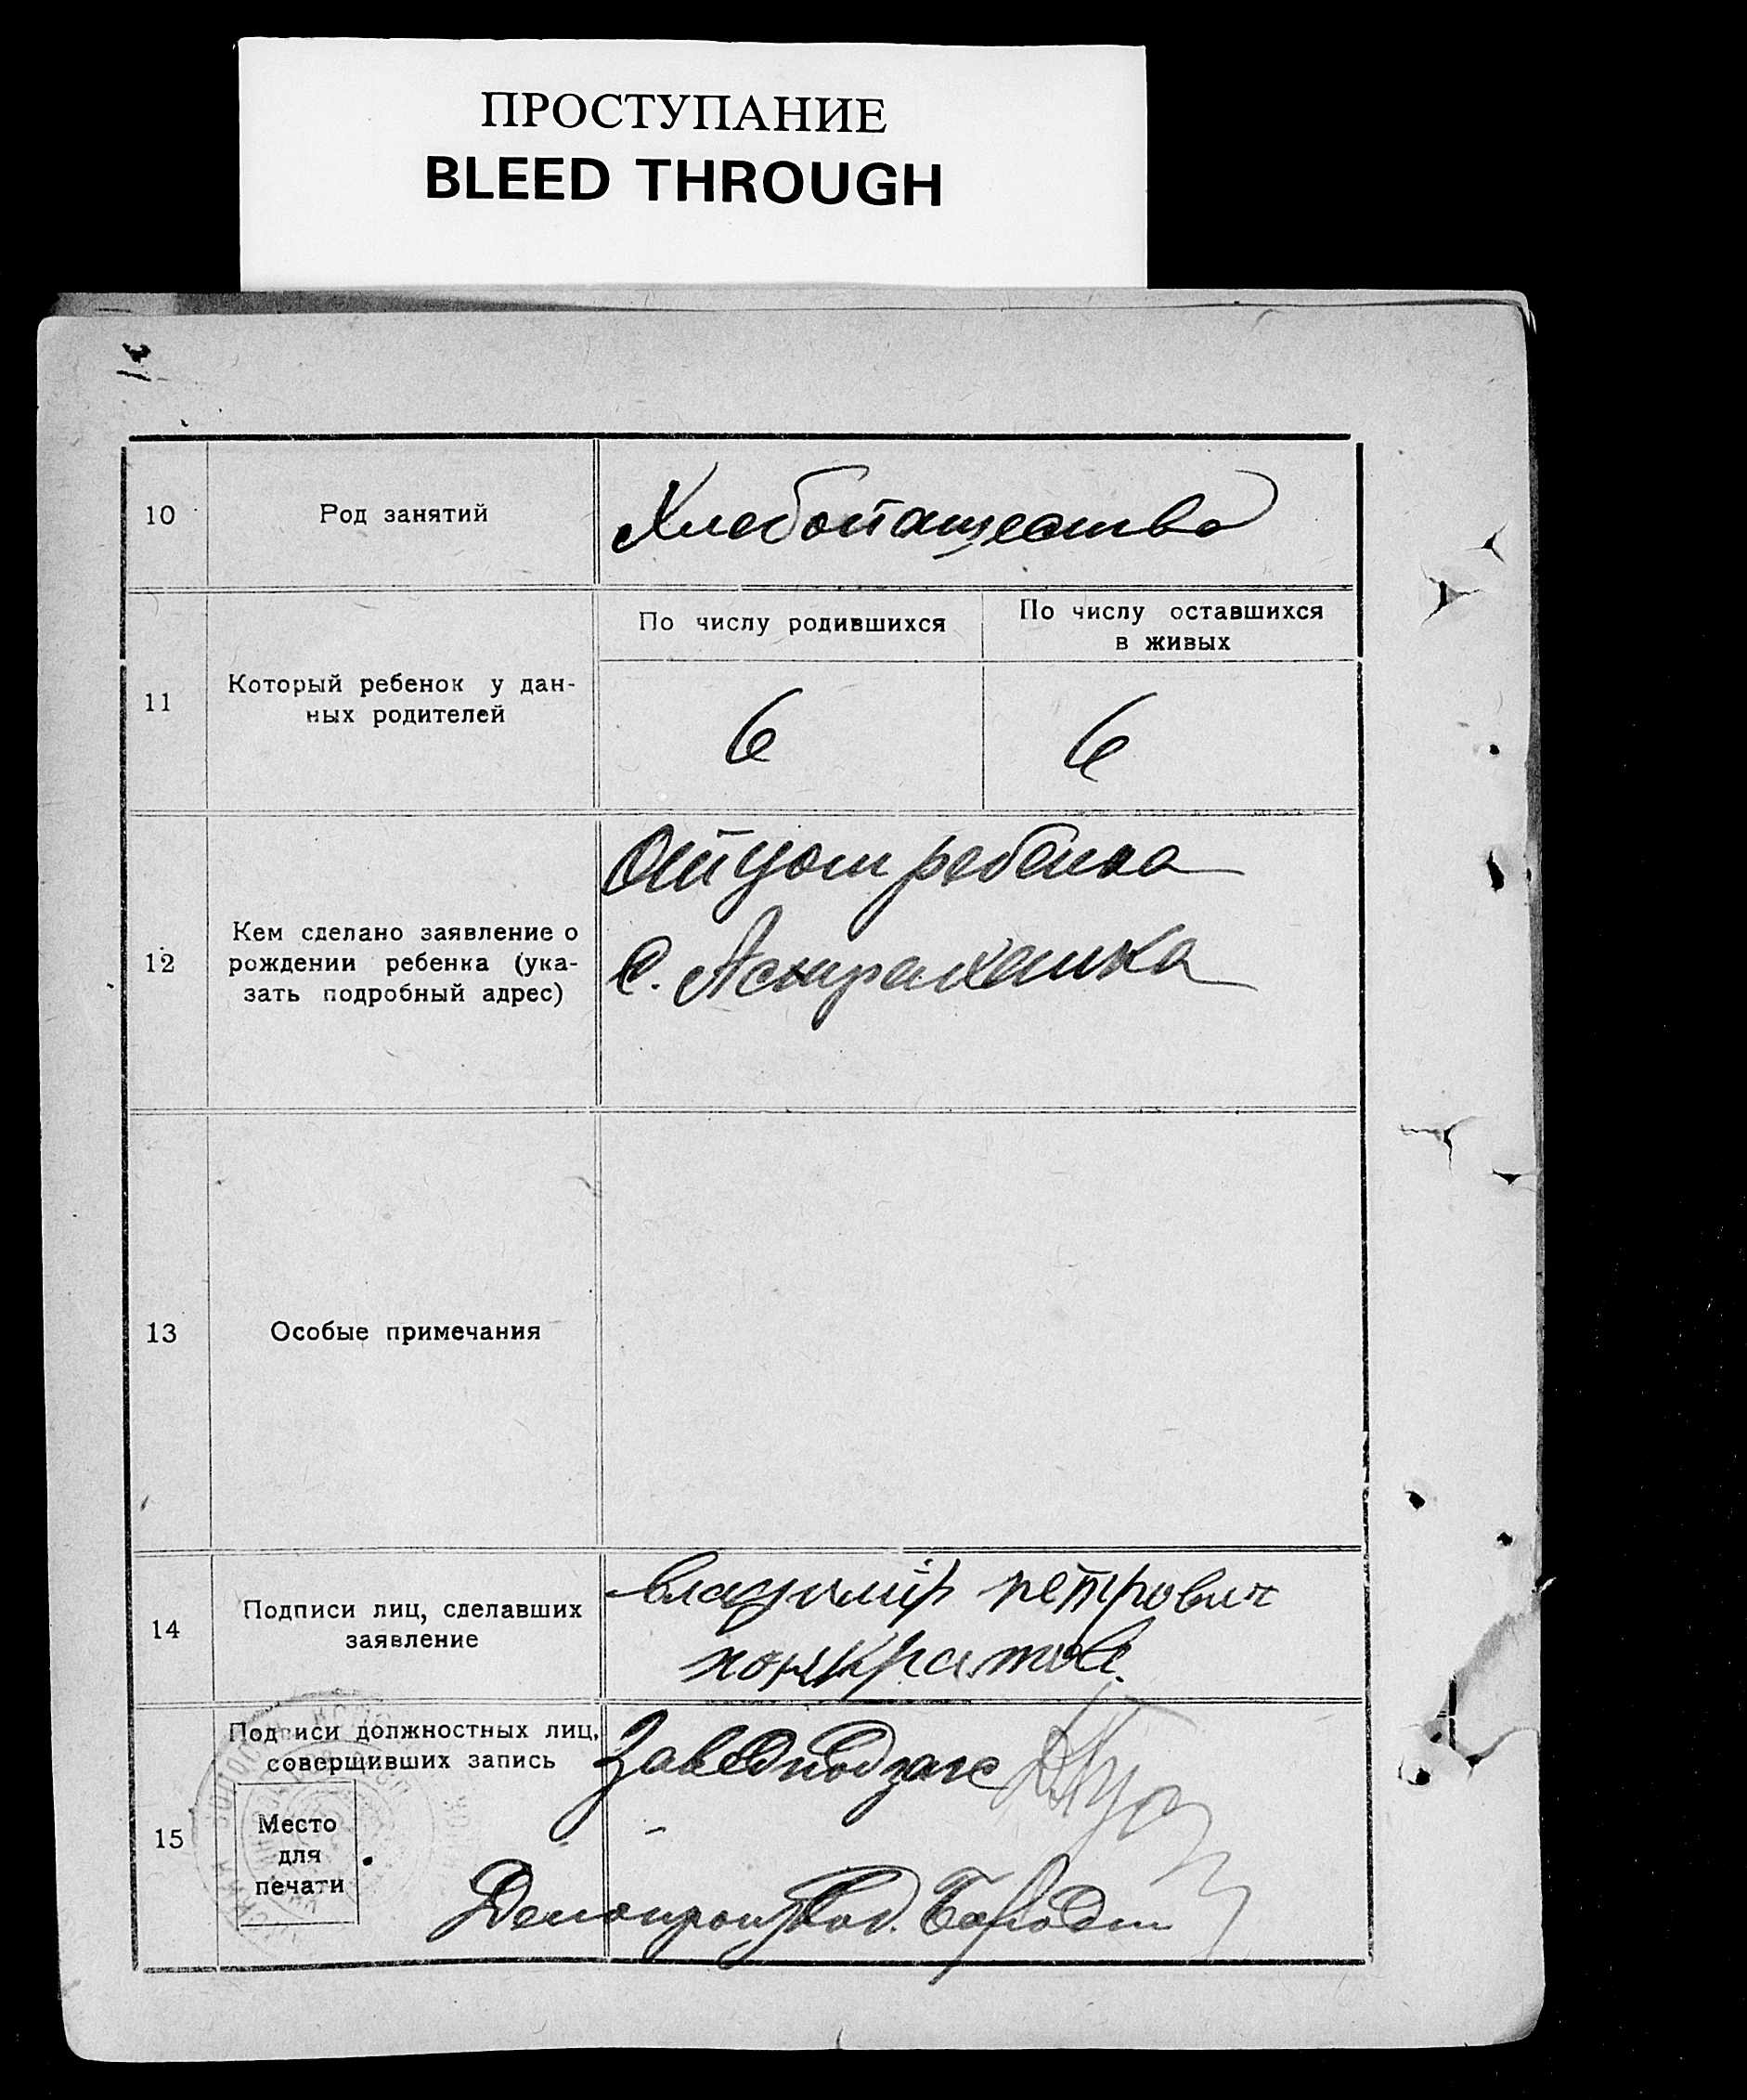 ПРОСТУПАНИЕ
BLEED THROUGH
10
Род занятий
Хлебопашество
11
Который ребенок у дан-
ных родителей
По числу родившихся
По числу оставшихся
в живых
6
6
12
Кем сделано заявление о
рождении ребенка (ука-
зать подробный адрес)
Отцом ребенка
С. Астраханка
13
Особые примечания
14
Подписи лиц, сделавших
заявление
владимир петрович
понкратов
15
Подписи должностных лиц,
совершивших запись
Завед подзагс
Место
для
печати
Делопроизвод. Бородин